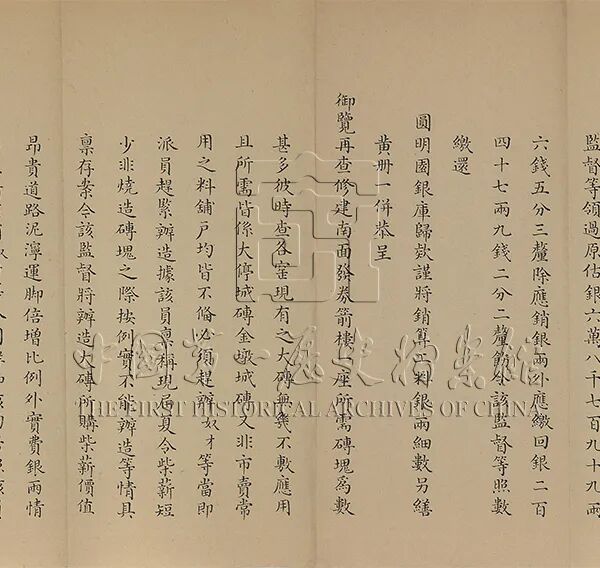 監督等領過原估銀六萬八千七百九十九兩
六錢五分三釐除應銷銀兩外應繳回銀二百
四十七兩九錢二分二釐飭令該監督等照數
繳還
圓明園銀庫歸款謹將銷算工料銀兩細數另繕
黃冊一併恭呈
御覽再查修建南面發券箭樓一座所需磚塊為數
甚多彼時查各窰現有之大磚無幾不敷應用
且所需皆係大停城磚金墩城磚又非市賣常
用之料舖戶均皆不備必須趕辦奴才等當即
派員趕緊辦造據該員稟稱現屆夏令柴薪短
少非燒造磚塊之際按例實不能辦造等情具
稟存案今該監督將辦造大磚所購柴薪價值
昂貴道路泥濘運腳倍增比例外實費銀兩情
中國第一歷史檔案館
THE FIRST HISTORICAL ARCHIVES OF CHINA